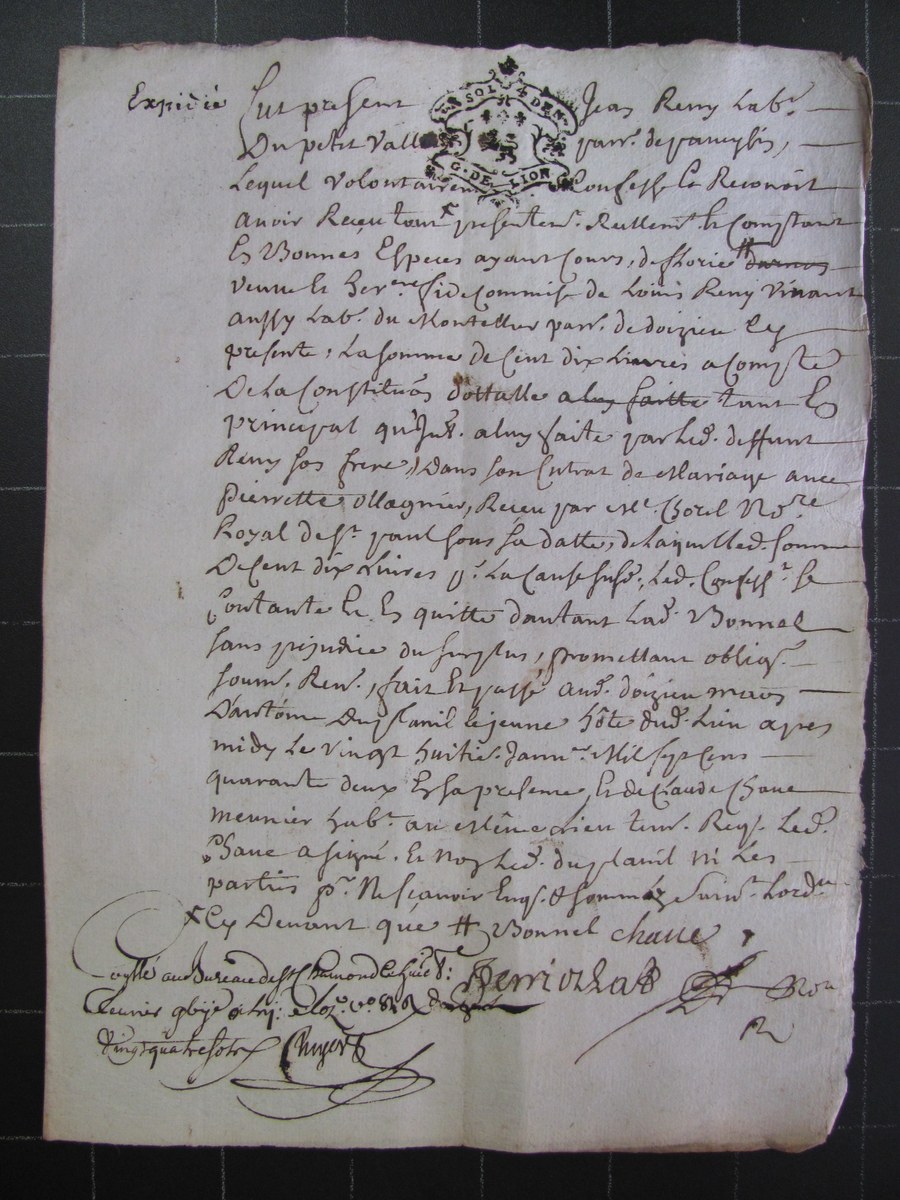 Expedié
SOL 4 DEN.
G. DE LION
Fut present Jean Remy Labr.
Du petit Vall parr. de
Lequel Volontairem Confesse Et Reconoit
avoir Receu tant presentemt. Reellemt. Et Comptant
En Bonnes Especes ayant Cours, de florie # darnas
veuve Et herere. fideCommise de Louis Remy Vivant
aussy Labr. du Montellier parr. de doizieu Cy
presente, La somme de Cent dix Livres a Compte
De La Constituon dottalle a luy faitte tant En
principal qu'Jnt. a luy faite par led. deffunt
Remy son frere, Dans son Contrat de Mariage avec
Pierrette Ollagnier, Receu par Me. Chorel Nore.
Royal de St. paul sous sa datte, de Laquelle d. somme
De Cent dix Livres pr. La Cause susd. Led. Confesst. se
Contante Et En quitte dautant Lad. Bonnel
sans prejudice du surplus, promettant obligt.
soum. Ren., fait Et passé aud. doizieu maison
D'antoine Duplanil le jeune hôte dud. Lieu apres
midy Le vingt huitie. Janvr. Mil sept Cens
quarante deux En la presence, Et de Claude Chave
meunier habt. au Même Lieu tem. Req. Led.
Chave a signé. Et Non Led. duplanil Ni Les
parties pr. Ne sçavoir Enq. & sommez suivt. Lordce
+ Cy Devant que # Bonnel chave
Collé au Bureau de St. Chamond le huict
feurier
Vingt quatre sols